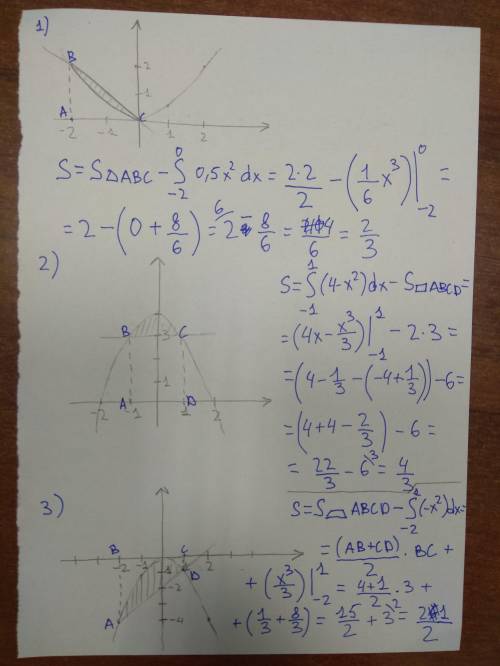 1)
B
2
1
A
C
-2 -1 1 2
S = S△ABC - ∫₋₂⁰ 0,5x² dx = 2·2/2 - (1/6 x³)|₋₂⁰ =
= 2 - (0 + 8/6) = 2 - 8/6 = 4/6 = 2/3
2)
B 3 C
1
A D
-2 -1 1 2
S = ∫₋₁¹ (4-x²)dx - S□ABCD =
= (4x - x³/3)|₋₁¹ - 2·3 =
= (4 - 1/3 - (-4 + 1/3)) - 6 =
= (4 + 4 - 2/3) - 6 =
= 22/3 - 6 = 4/3
3)
B C
-2 -1 1 2
D
-2
A
-4
S = S ABCD - ∫₋₂¹ (-x²)dx =
= (AB+CD)/2 · BC +
+ (x³/3)|₋₂¹ = 4+1/2 · 3 +
+ (1/3 + 8/3) = 15/2 + 3 = 21/2